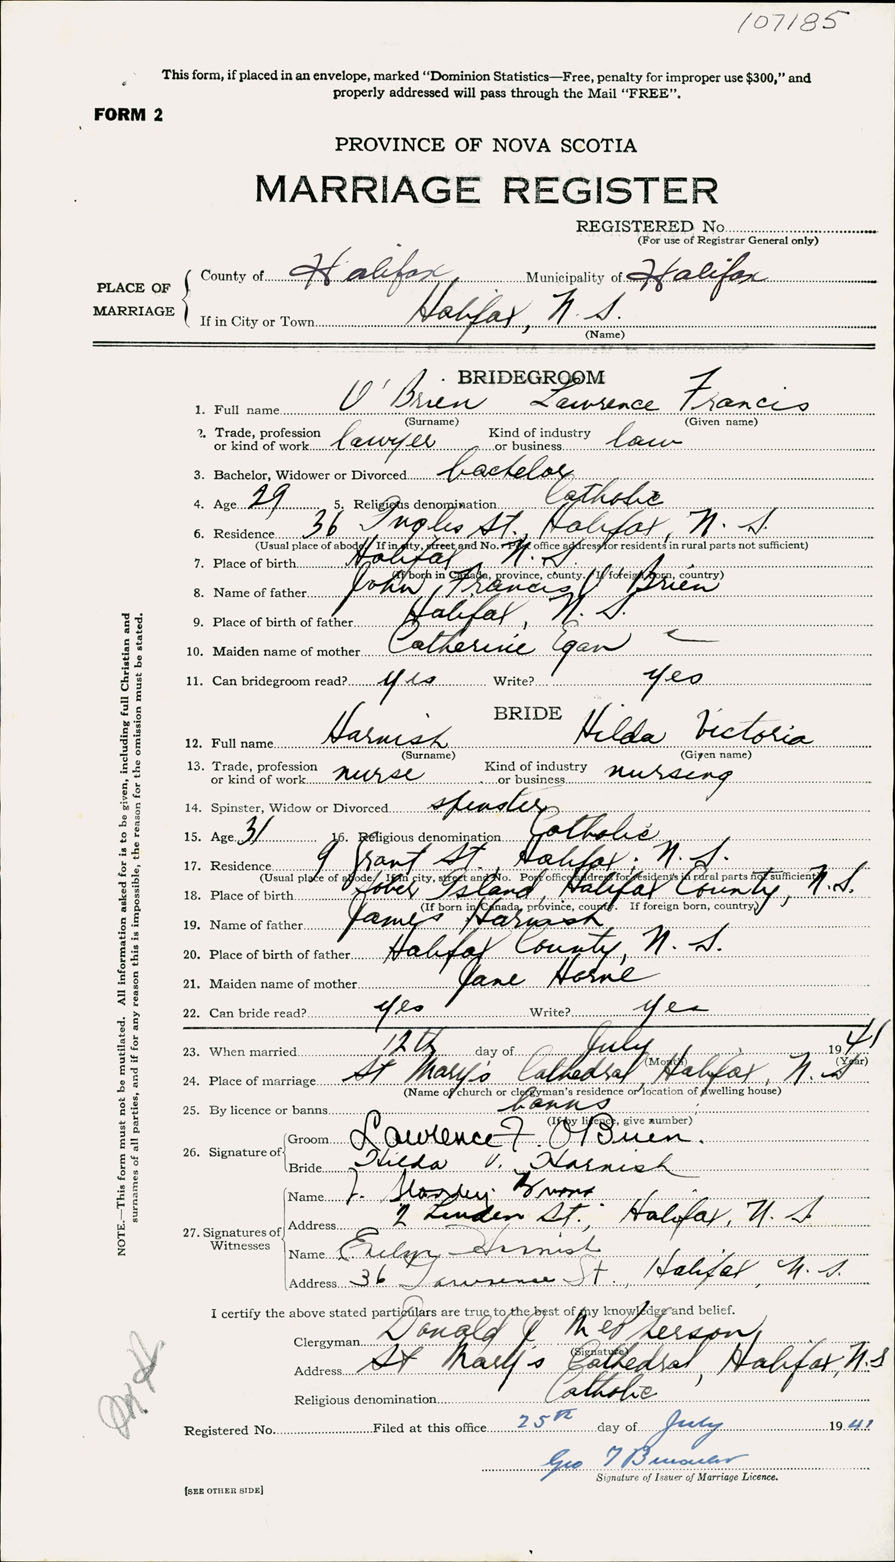 107185
This form, if placed in an envelope, marked "Dominion Statistics—Free, penalty for improper use $300," and
properly addressed will pass through the Mail "FREE".
FORM 2
PROVINCE OF NOVA SCOTIA
MARRIAGE REGISTER
REGISTERED No.
(For use of Registrar General only)
PLACE OF MARRIAGE
County of Halifax Municipality of Halifax
If in City or Town Halifax, N. S.
(Name)
BRIDEGROOM
1. Full name O'Brien Lawrence Francis
(Surname) (Given name)
2. Trade, profession or kind of work lawyer Kind of industry or business law
3. Bachelor, Widower or Divorced bachelor
4. Age 29 5. Religious denomination Catholic
6. Residence 36 Inglis St. Halifax, N. S.
(Usual place of abode. If in city, street and No. Post office address for residents in rural parts not sufficient)
7. Place of birth Halifax, N. S.
(If born in Canada, province, county. If foreign born, country)
8. Name of father John Francis O'Brien
9. Place of birth of father Halifax, N. S.
10. Maiden name of mother Catherine Egan
11. Can bridegroom read? yes Write? yes
BRIDE
12. Full name Harnish Hilda Victoria
(Surname) (Given name)
13. Trade, profession or kind of work nurse Kind of industry or business nursing
14. Spinster, Widow or Divorced spinster
15. Age 31 16. Religious denomination Catholic
17. Residence 9 Grant St. Halifax, N. S.
(Usual place of abode. If in city, street and No. Post office address for residents in rural parts not sufficient)
18. Place of birth Island, Halifax County, N.S.
(If born in Canada, province, county. If foreign born, country)
19. Name of father James Harnish
20. Place of birth of father Halifax County, N. S.
21. Maiden name of mother Jane Horne
22. Can bride read? yes Write? yes
23. When married 12th day of July 1941
(Month) (Year)
24. Place of marriage St Mary's Cathedral, Halifax, N. S
(Name of church or clergyman's residence or location of dwelling house)
25. By licence or banns banns
(If by licence, give number)
26. Signature of Groom Lawrence F. O'Brien.
Bride Hilda V. Harnish
27. Signatures of Witnesses
Name J.
Address 2 Linden St., Halifax, N. S
Name Evelyn Harnish
Address 36 Lawrence St., Halifax, N. S.
I certify the above stated particulars are true to the best of my knowledge and belief.
Clergyman Donald J McPherson
(Signature)
Address St Mary's Cathedral, Halifax, N.S
Religious denomination Catholic
Registered No. Filed at this office 25th day of July 1941
Geo
Signature of Issuer of Marriage Licence.
[SEE OTHER SIDE]
NOTE.—This form must not be mutilated. All information asked for is to be given, including full Christian and
surnames of all parties, and if for any reason this is impossible, the reason for the omission must be stated.